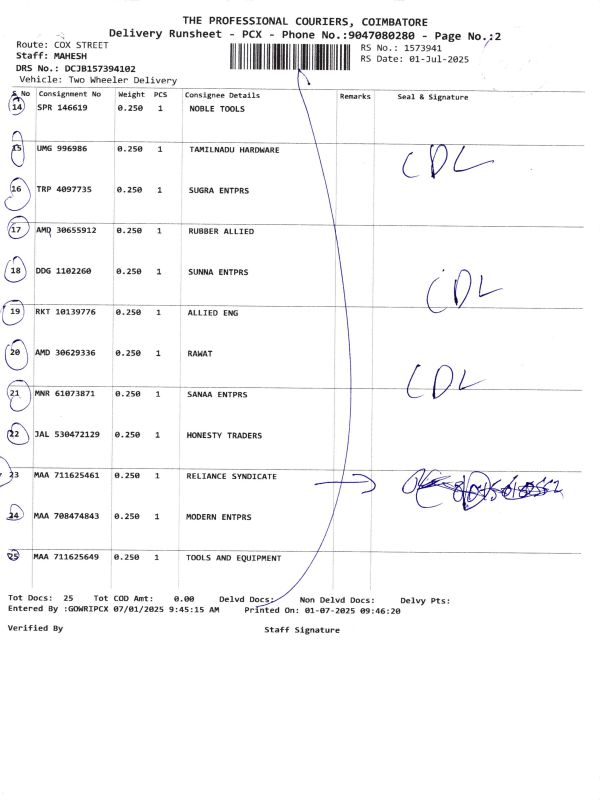 THE PROFESSIONAL COURIERS, COIMBATORE
Delivery Runsheet - PCX - Phone No.:9047080280 - Page No.:2
Route: COX STREET
RS No.: 1573941
Staff: MAHESH
RS Date: 01-Jul-2025
DRS No.: DCJB157394102
Vehicle: Two Wheeler Delivery
S No Consignment No Weight PCS Consignee Details Remarks Seal & Signature
14 SPR 146619 0.250 1 NOBLE TOOLS
15 UMG 996986 0.250 1 TAMILNADU HARDWARE CDL
16 TRP 4097735 0.250 1 SUGRA ENTPRS
17 AMD 30655912 0.250 1 RUBBER ALLIED
18 DDG 1102260 0.250 1 SUNNA ENTPRS CDL
19 RKT 10139776 0.250 1 ALLIED ENG
20 AMD 30629336 0.250 1 RAWAT CDL
21 MNR 61073871 0.250 1 SANAA ENTPRS
22 JAL 530472129 0.250 1 HONESTY TRADERS
23 MAA 711625461 0.250 1 RELIANCE SYNDICATE
24 MAA 708474843 0.250 1 MODERN ENTPRS
25 MAA 711625649 0.250 1 TOOLS AND EQUIPMENT
Tot Docs: 25 Tot COD Amt: 0.00 Delvd Docs: Non Delvd Docs: Delvy Pts:
Entered By :GOWRIPCX 07/01/2025 9:45:15 AM Printed On: 01-07-2025 09:46:20
Verified By Staff Signature